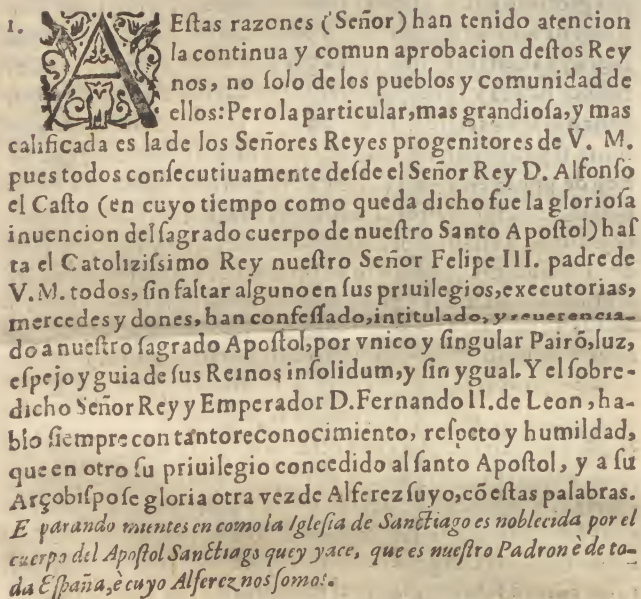 1. A Estas razones (Señor) han tenido atencion
la continua y comun aprobacion destos Rey
nos, no solo de los pueblos y comunidad de
ellos: Pero la particular, mas grandiosa, y mas
calificada es la de los Señores Reyes progenitores de V. M.
pues todos consecutiuamente desde el Señor Rey D. Alfonso
el Casto (en cuyo tiempo como queda dicho fue la gloriosa
inuencion del sagrado cuerpo de nuestro Santo Apostol) has
ta el Catolizissimo Rey nuestro Señor Felipe III. padre de
V. M. todos, sin faltar alguno en sus priuilegios, executorias,
mercedes y dones, han confessado, intitulado, y reuerencia-
do a nuestro sagrado Apostol, por vnico y singular Patrõ, luz,
espejo y guia de sus Reinos insolidum, y sin ygual. Y el sobre-
dicho Señor Rey y Emperador D. Fernando II. de Leon, ha-
blo siempre con tanto reconocimiento, respeto y humildad,
que en otro su priuilegio concedido al santo Apostol, y a su
Arçobispo se gloria otra vez de Alferez suyo, cõ estas palabras.
E parando mientes en como la Iglesia de Sanctiago es noblecida por el
cuerpo del Apostol Sanctiago que y yace, que es nuestro Padron è de to-
da España, è cuyo Alferez nos somos.